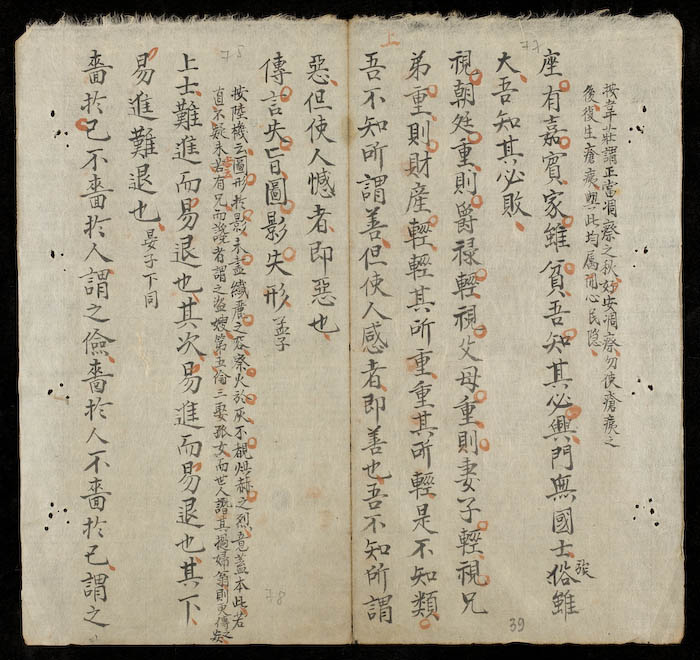 77
按韋莊謂正當凋瘵之秋好安凋瘵勿使瘡痍之
後復生瘡痍與此均属関心民隐
座有嘉賓家雖貧吾知其必興門無國士俗雖
強
大吾知其必敗
視朝廷重則爵禄輕視父母重則妻子輕視兄
弟重則財産輕輕其所重重其所輕是不知類
吾不知所謂善但使人感者即善也吾不知所謂
39
上
惡但使人憾者即惡也
傳言失旨圖影失形 孟子
按陸機云圖形於影未盡纎麗之容察火於灰不覩烘赫之烈意盖本此若
直不疑未嘗有兄而謗者謂之盗嫂第五倫三娶孤女而世人謂其撾婦翁則更傳之失
上士難進而易退也其次易進而易退也其下
易進難退也 晏子下同
嗇於己不嗇於人謂之儉嗇於人不嗇於己謂之
75
78